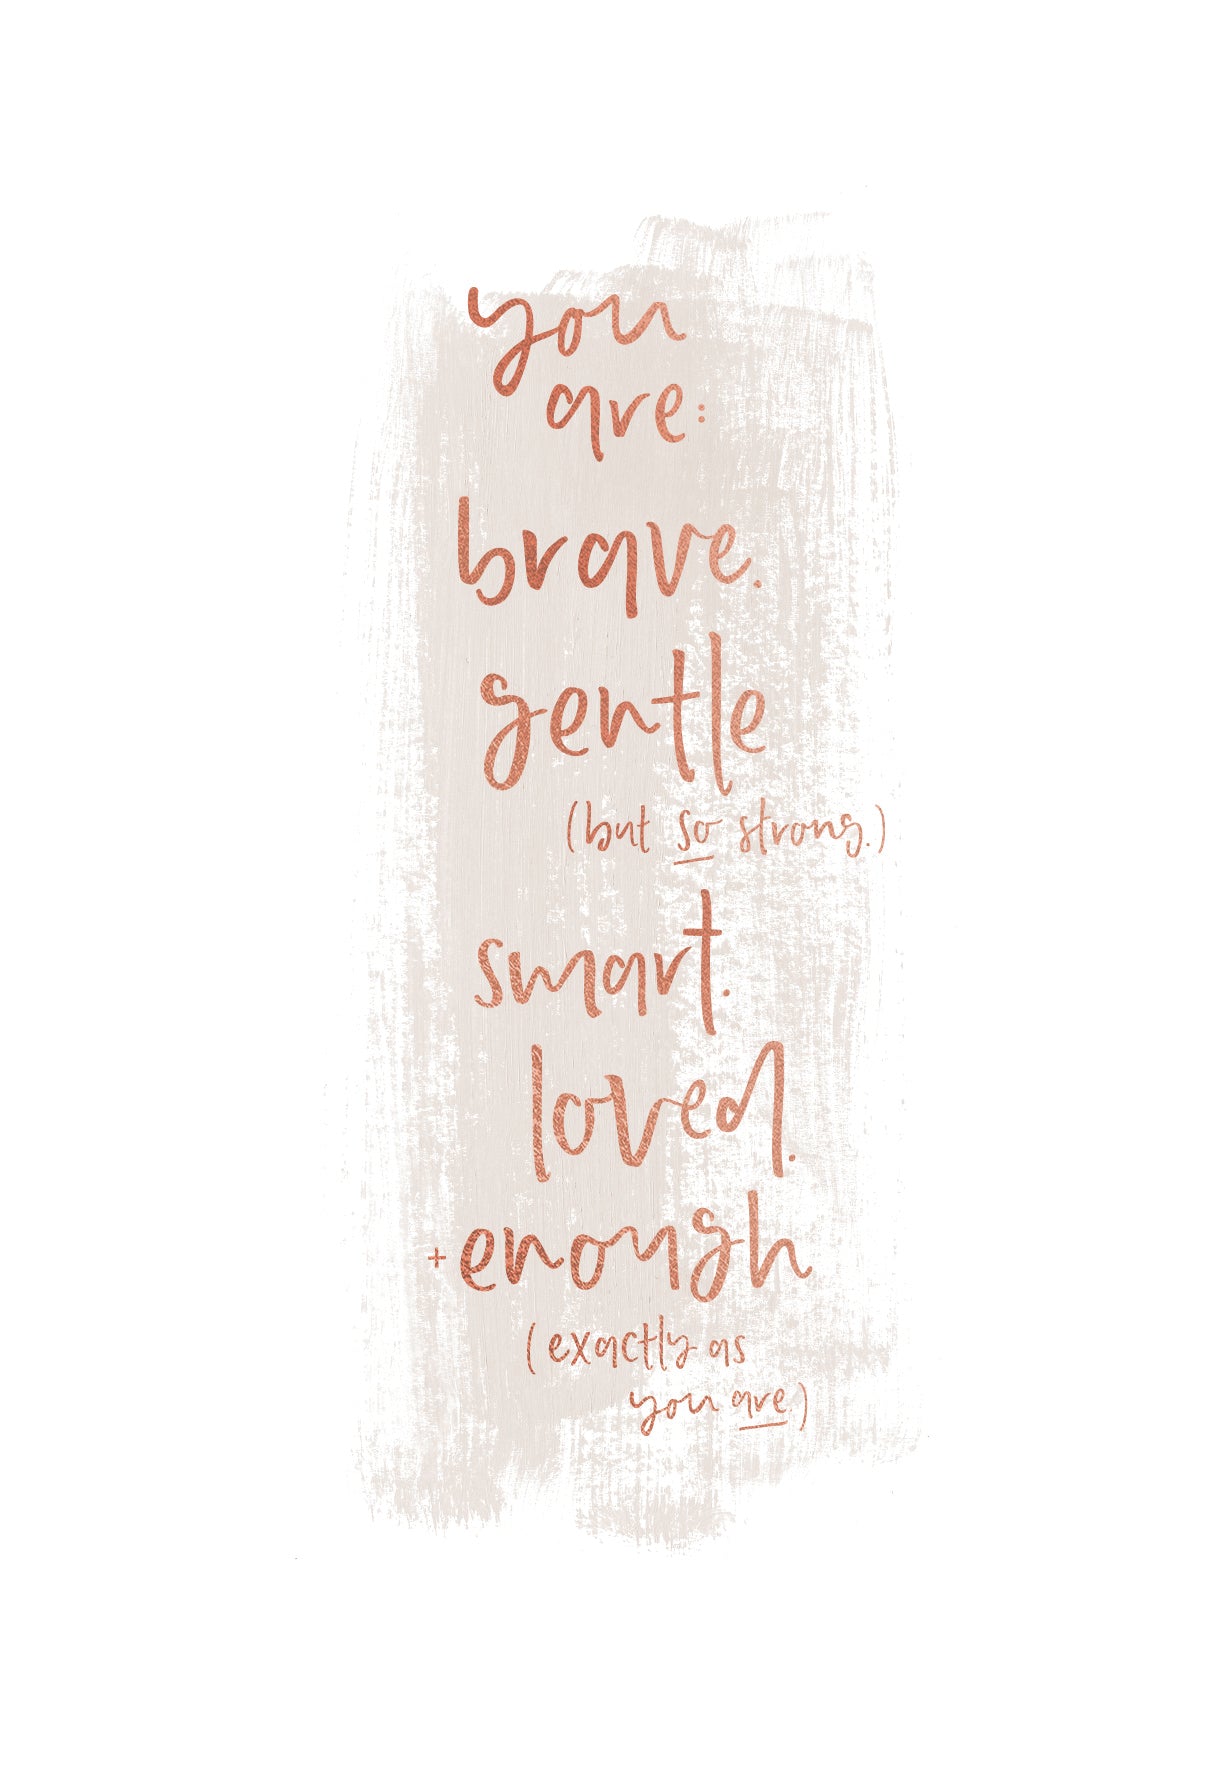 you
are:
brave.
gentle
(but so strong.)
smart.
loved.
+ enough
(exactly as
you are.)